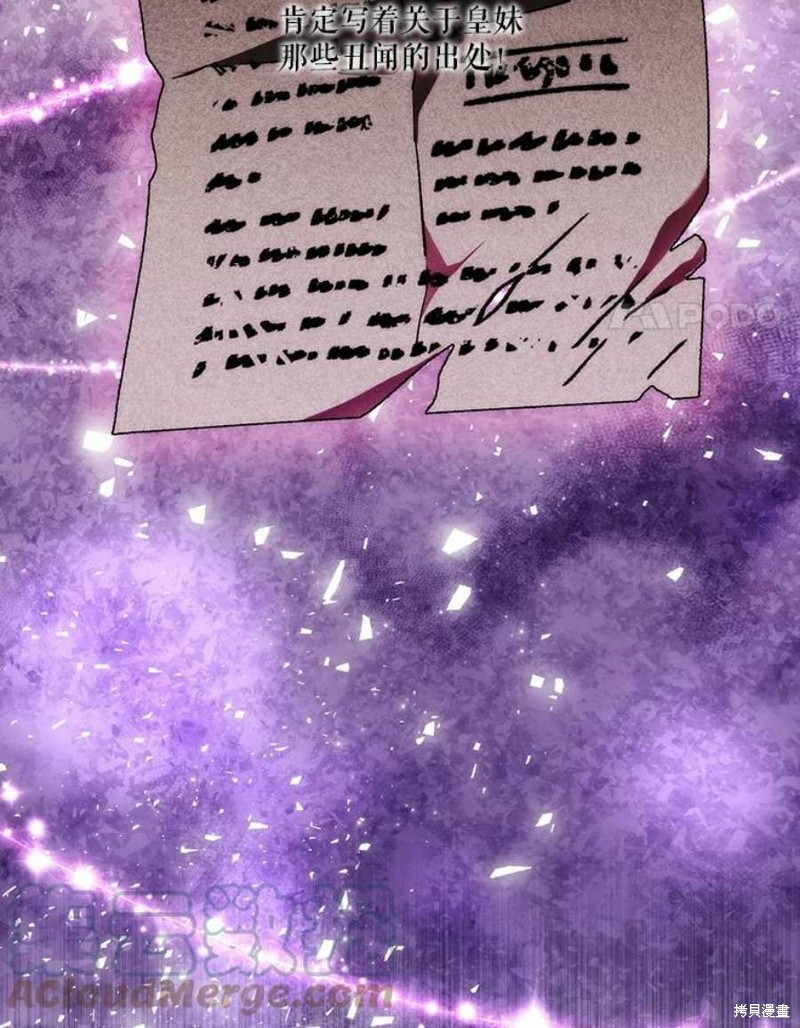 肯定写着关于皇妹
那些丑闻的出处!
PODO
笔云数据
ACloudMerge.com
拷貝漫畫